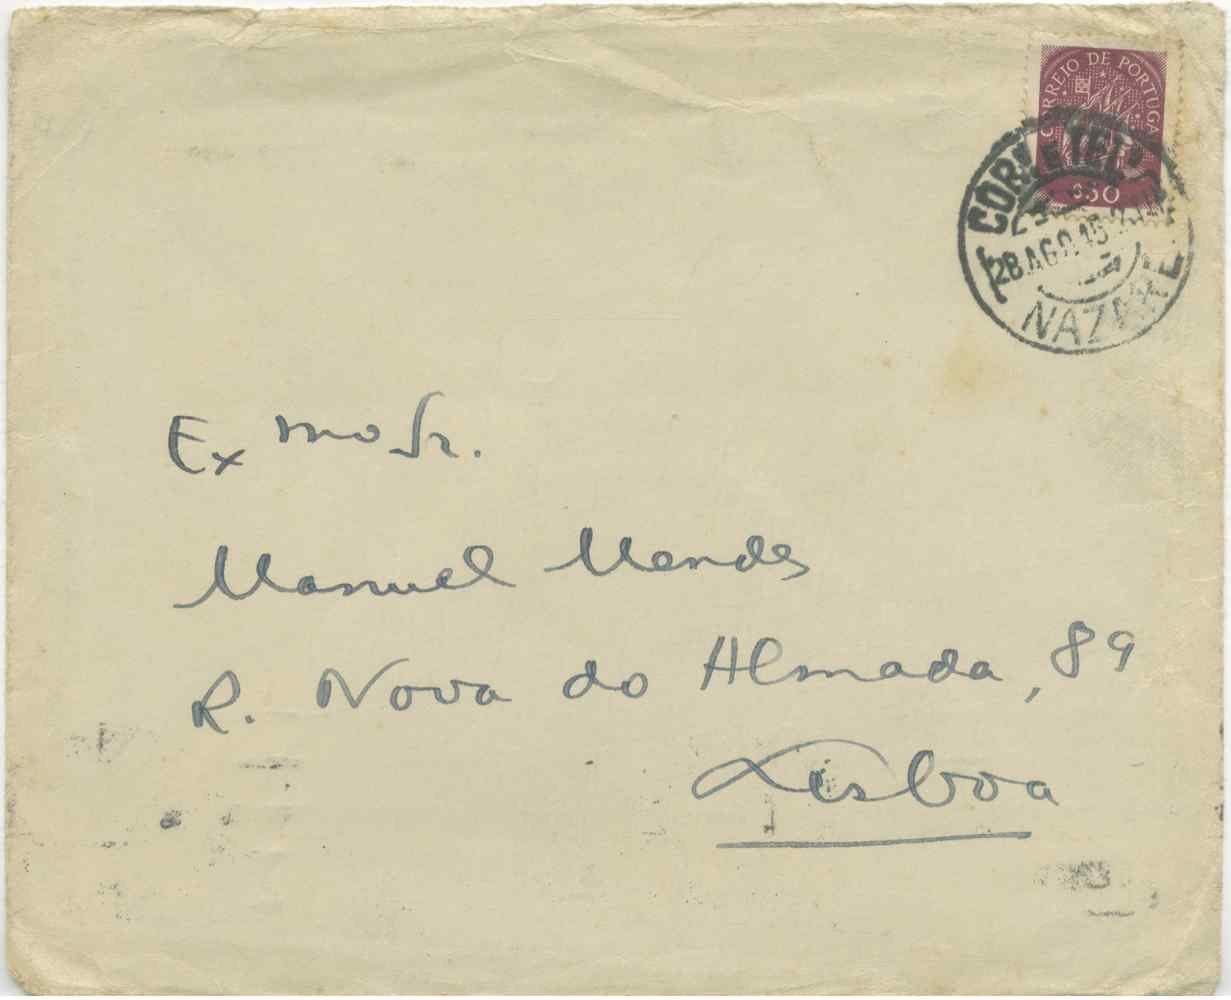 CORREIO DE PORTUGAL
$50
CORR. E TEL.
28.AGO.45
NAZARÉ
Ex mo Sr.
Manuel Mendes
R. Nova do Almada, 89
Lisboa